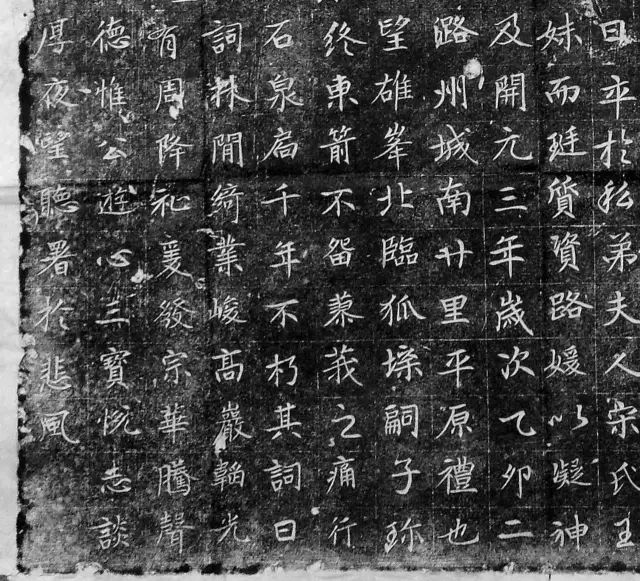 日卒於私弟夫人宗氏王
妹而琎質資路媛以凝神
及開元三年歲次乙卯二
潞州城南廿里平原禮也
望雄峯北臨狐墂嗣子珎
終東箭不畱蓼莪之痛行
石泉扃千年不朽其詞曰
詞林閒綺業峻髙巖韜光
有周降祉爰發宗華騰聲
德惟公遊心三寶恍志談
厚夜望聽署於悲風